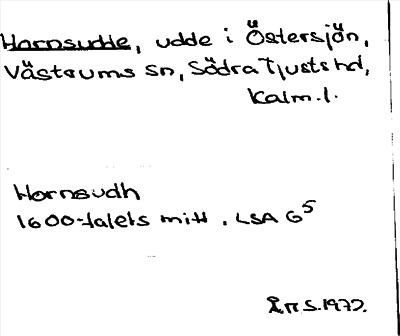 Hornsudde, udde i Östersjön,
Västrums sn, Södra Tjusts hd,
Kalm. l.
Hornsudh
1600-talets mitt. LSA G5
ÅNS. 1972.